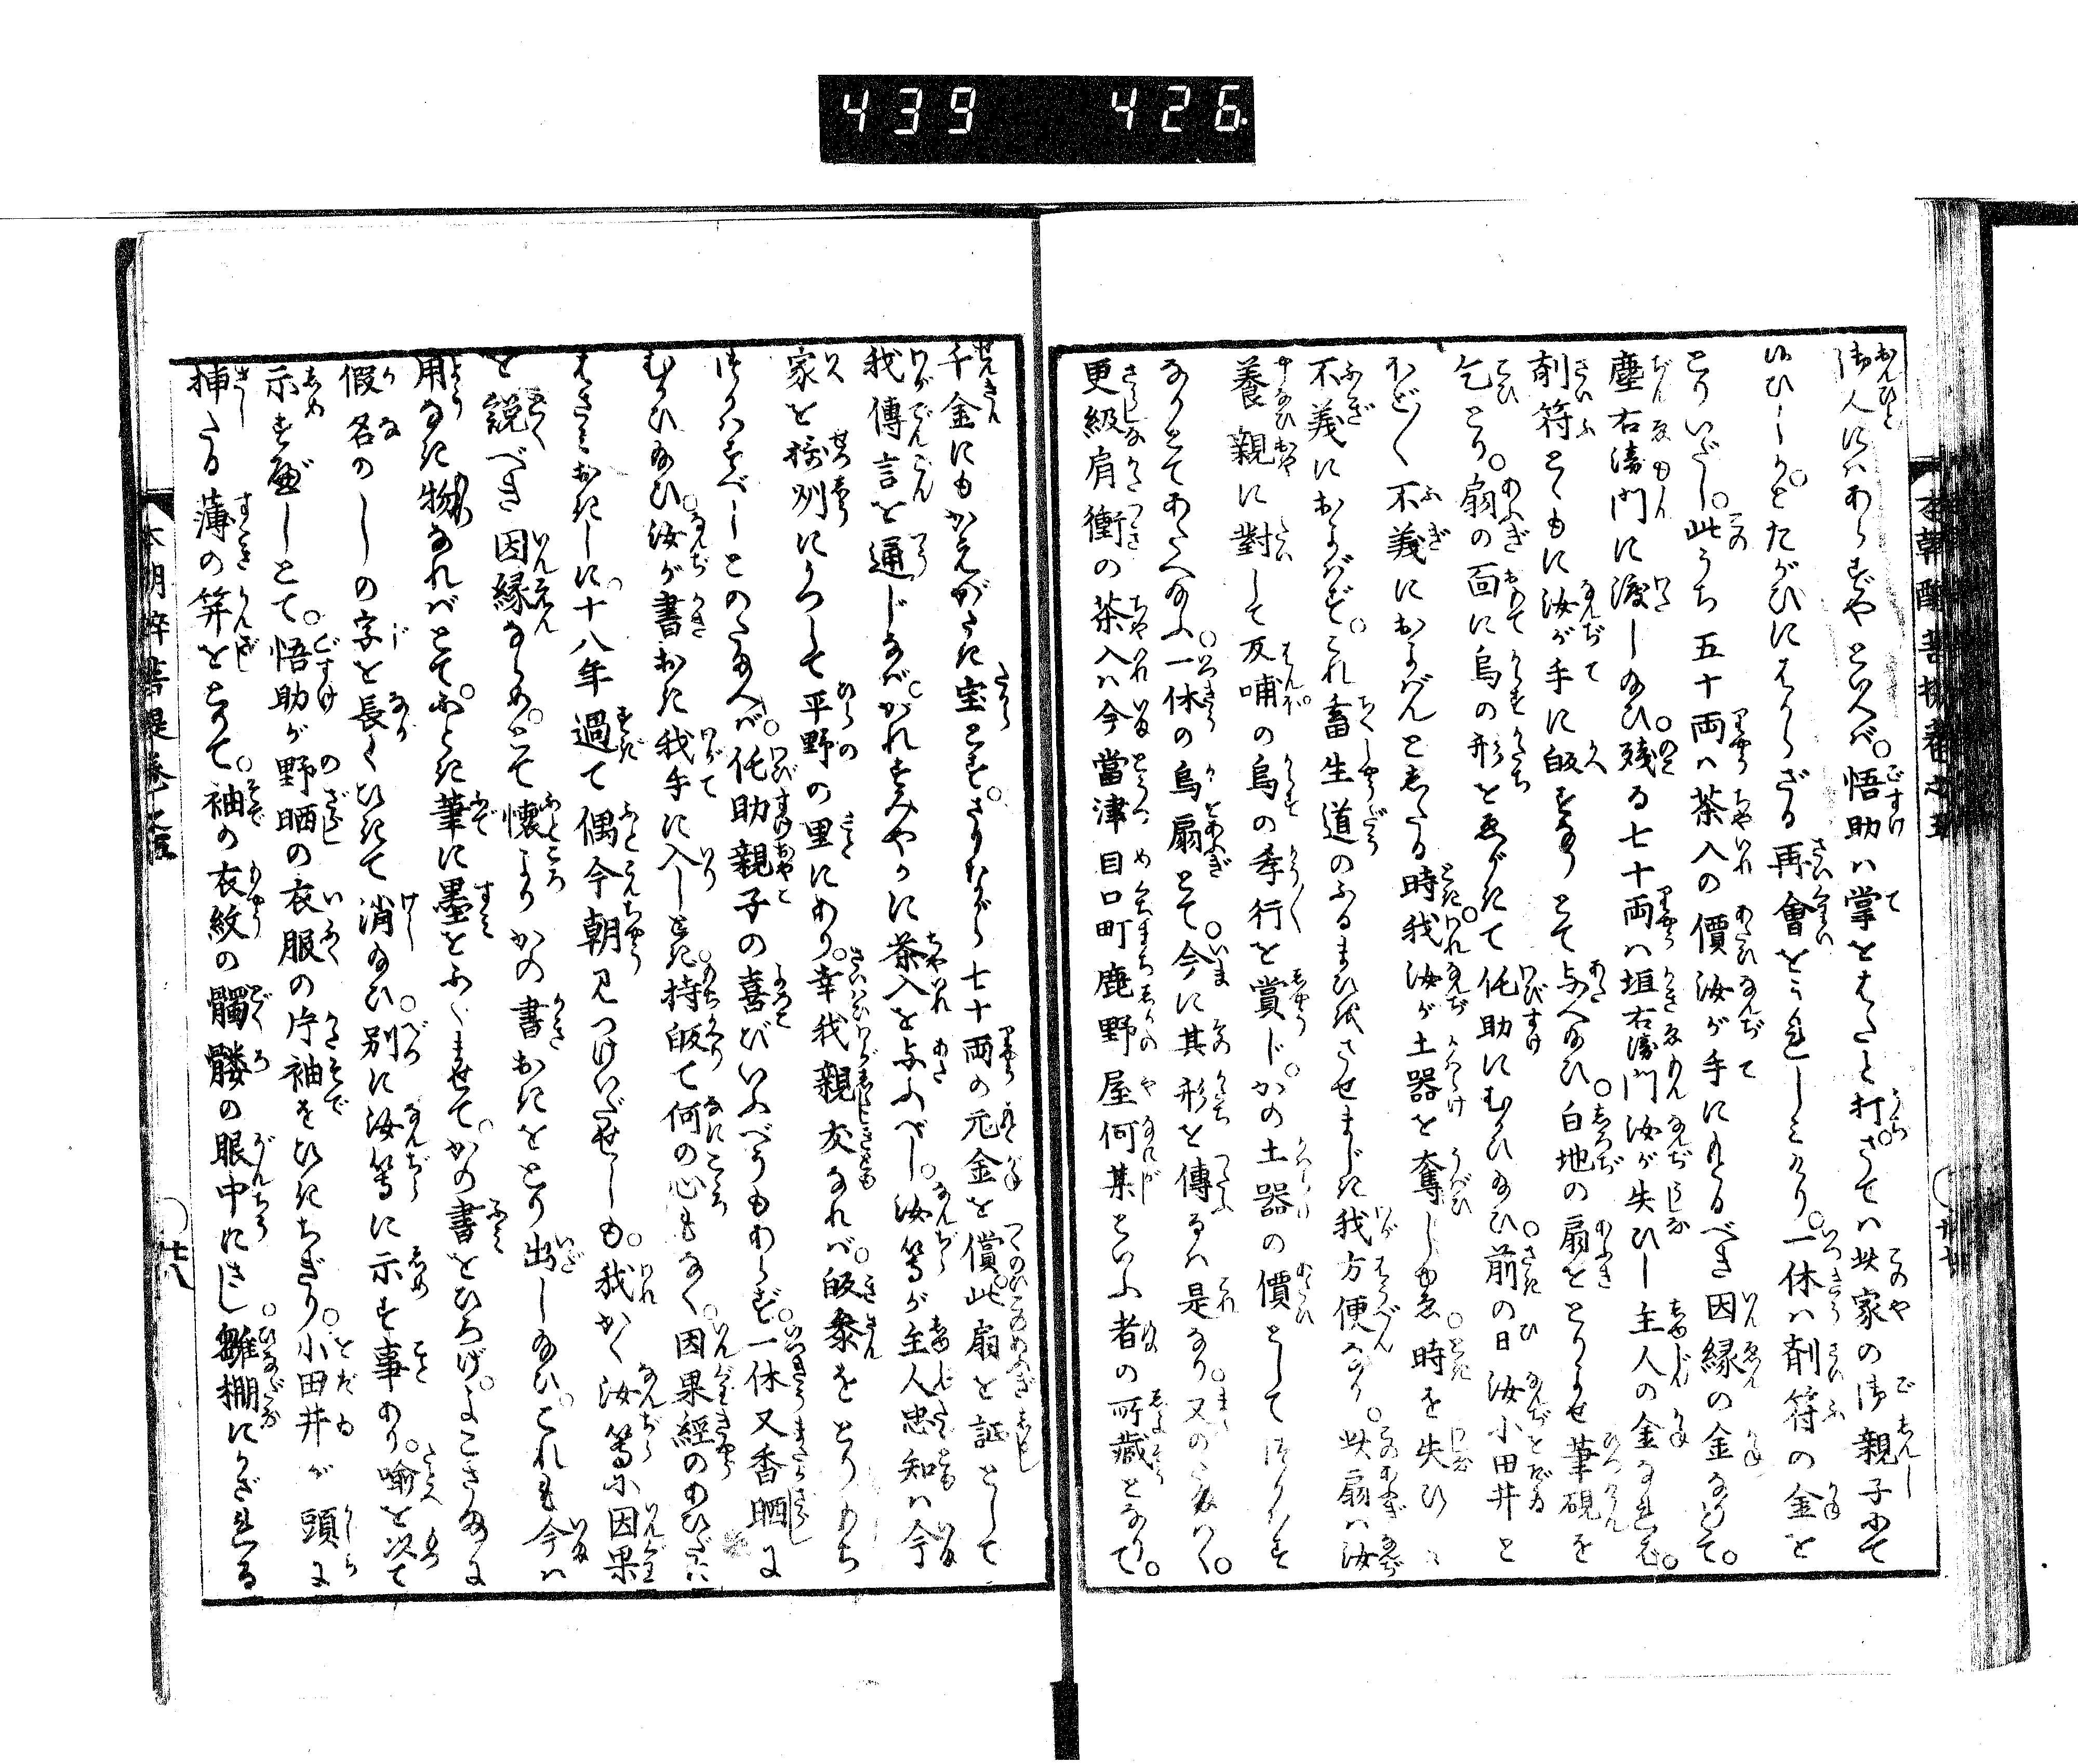 439 426
御人にはあらずやといへば。悟助は掌をはたと打。さては此家の御親子にて
ゐひしか。とたがひにはからざる再會をうれしみけり。一休は剤符の金を
とりいだし。此うち五十両は茶入の價汝が手にわたるべき因縁の金なりとて。
塵右衛門に渡し給ひ。残る七十両は垣右衛門汝が失ひし主人の金なれば。
剤符とともに汝が手に皈すなりとて与へ給ひ。白地の扇をとりよせ筆硯を
乞とり。扇の面に烏の形をゑがきて侘助にむかひ給ひ。前の日汝小田井と
ほど〳〵不義におよばんとしたる時我汝が土器を奪しゆゑ時を失ひ
不義におよばず。これ畜生道のふるまひをさせまじき我方便なり。此扇は汝
養親に對して反哺の烏の孝行を賞じ。かの土器の價としてつかはす
なりとてあたへ給ふ。一休の烏扇とて今に其形を傳るは是なり。又の
更級肩衝の茶入は今當津目口町鹿野屋何某といふ者の所蔵となりて。
千金にもかえがたき宝とす。さりながら七十両の元金を償。此扇を証として
我傳言を通じなば。かれすみやかに茶入を与ふべし。汝等が主人忠知は今
家を摂州にうつして平野の里にあり。幸我親友なれば。皈参をとりもち
つかはすべしとのたまへば。侘助親子の喜びいふべうもあらず。一休又香晒に
むかひ給ひ。汝が書おき我手に入しとき。持皈て何の心もなく。因果經のあひだに
はさみおきしに。十八年過て偶今朝見つけいだせしも。我かく汝等に因果
を説べき因縁ならめ。とて懐よりかの書おきをとり出し給ひ。これも今は
用なき物なればとて。ふとき筆に墨をふくませて。かの書をひろげ。よこさまに
假名のしの字を長くひきて消給ひ。別に汝等に示す事あり。喩を以て
示すべしとて。悟助が野晒の衣服の片袖をひきちぎり。小田井が頭に
挿たる薄の筓をとりて。袖の衣紋の髑髏の眼中にさし雛棚にかざれる
本朝酔菩提巻之五
本朝酔菩提巻之五
廿八